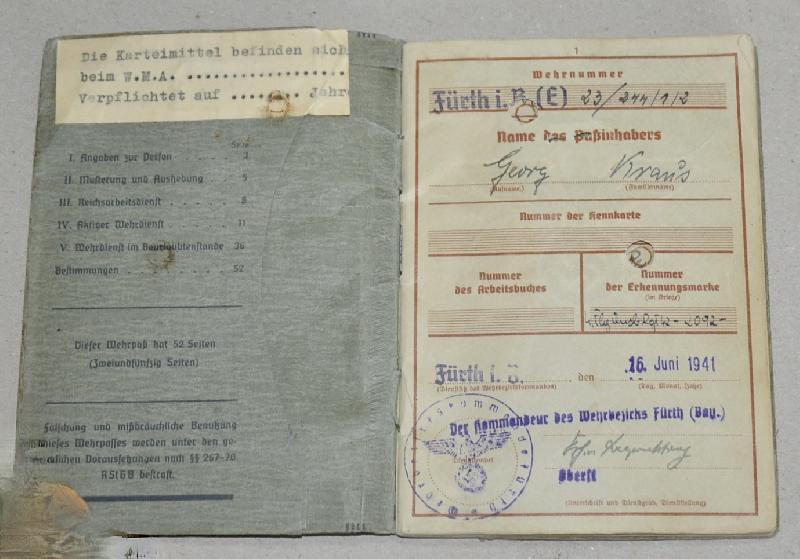 Die Karteimittel befinden sich
beim W.M.A. ...................
Verpflichtet auf ........ Jahre
Seite
I. Angaben zur Person . . . . 3
II. Musterung und Aushebung . . 5
III. Reichsarbeitsdienst . . . . . 8
IV. Aktiver Wehrdienst . . . . . 11
V. Wehrdienst im Beurlaubtenstande 36
Bestimmungen . . . . . . . . 52
Dieser Wehrpaß hat 52 Seiten
(Zweiundfünfzig Seiten)
Fälschung und mißbräuchliche Benutzung
dieses Wehrpasses werden unter den ge-
setzlichen Voraussetzungen nach §§ 267-70
RStGB bestraft.
1
Wehrnummer
Fürth i. B. (E) 23/244/1/2
Name des Paßinhabers
Georg Kraus
(Rufname) (Familienname)
Nummer der Kennkarte
Nummer
des Arbeitsbuches
Nummer
der Erkennungsmarke
(im Kriege)
-2092-
Fürth i. B. , den 16. Juni 1941
(Dienstsitz des Wehrbezirkskommandos) (Tag, Monat, Jahr)
Der Kommandeur des Wehrbezirks Fürth (Bay.)
Oberst
(Unterschrift und Dienstgrad, Dienststellung)